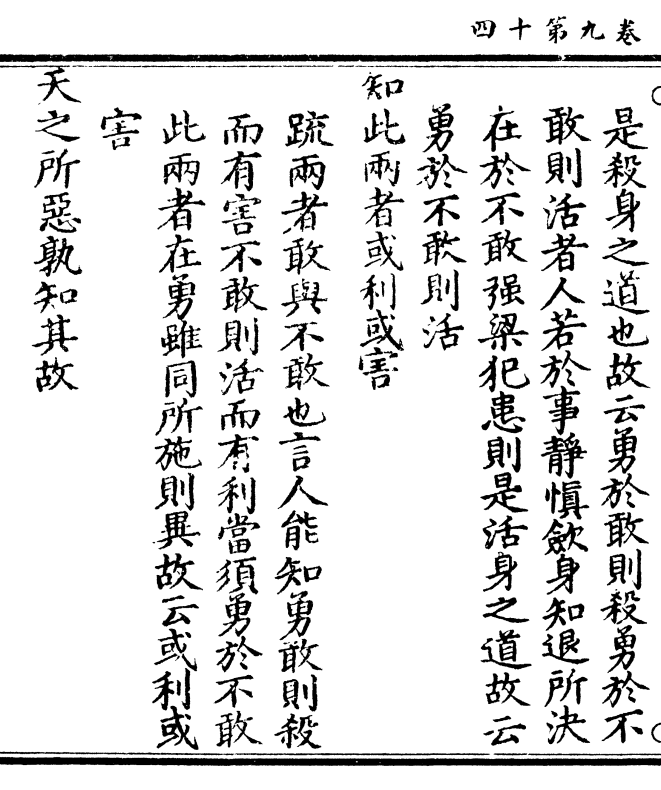 卷九第十四
是殺身之道也故云勇於敢則殺勇於不
敢則活者人若於事靜慎歛身知退所決
在於不敢强梁犯患則是活身之道故云
勇於不敢則活
知此兩者或利或害
疏兩者敢與不敢也言人能知勇敢則殺
而有害不敢則活而有利當須勇於不敢
此兩者在勇雖同所施則異故云或利或
害
天之所惡孰知其故